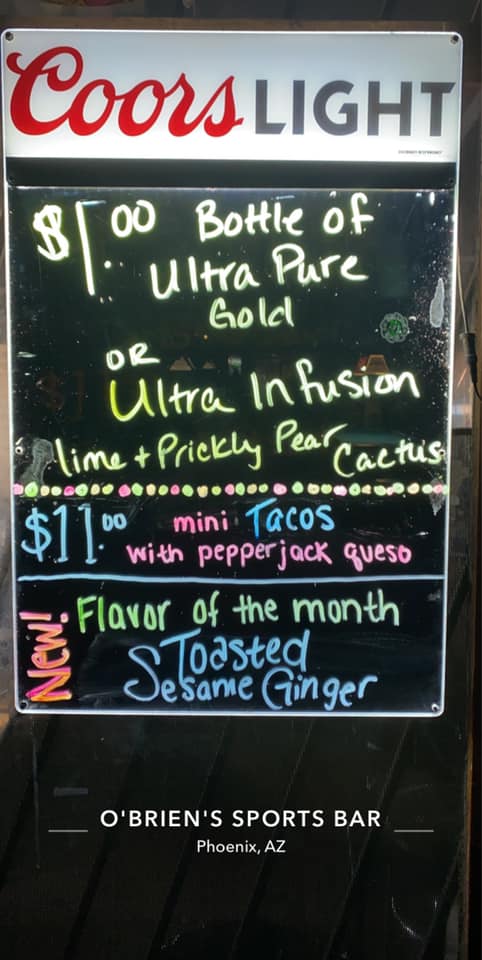 Coors LIGHT
$1.00 Bottle of
Ultra Pure
Gold
OR
Ultra Infusion
lime + Prickly Pear Cactus
$11.00 mini Tacos
with pepperjack queso
New! Flavor of the month
Toasted
Sesame Ginger
O'BRIEN'S SPORTS BAR
Phoenix, AZ